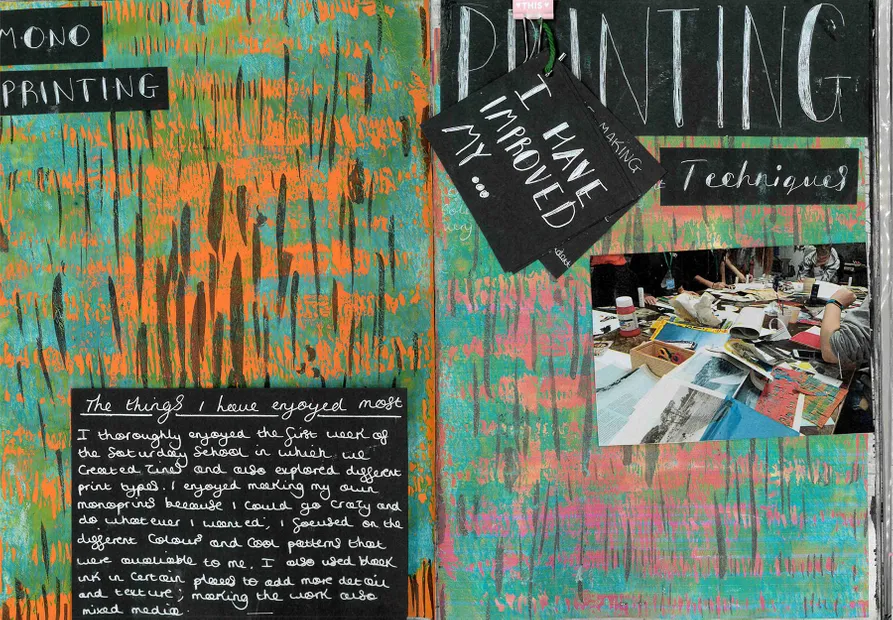 MONO
PRINTING
The things I have enjoyed most
I thoroughly enjoyed the first week of
the Saturday School in which we
Created Zines and also explored different
print types. I enjoyed making my own
monoprints because I could go Crazy and
do whatever I wanted; I focused on the
different Colours and Cool patterns that
were available to me. I also used black
ink in Certain places to add more detail
and texture; making the work also
mixed media.
THIS
PRINTING
Techniques
I HAVE
IMPROVED
MY...
MAKING